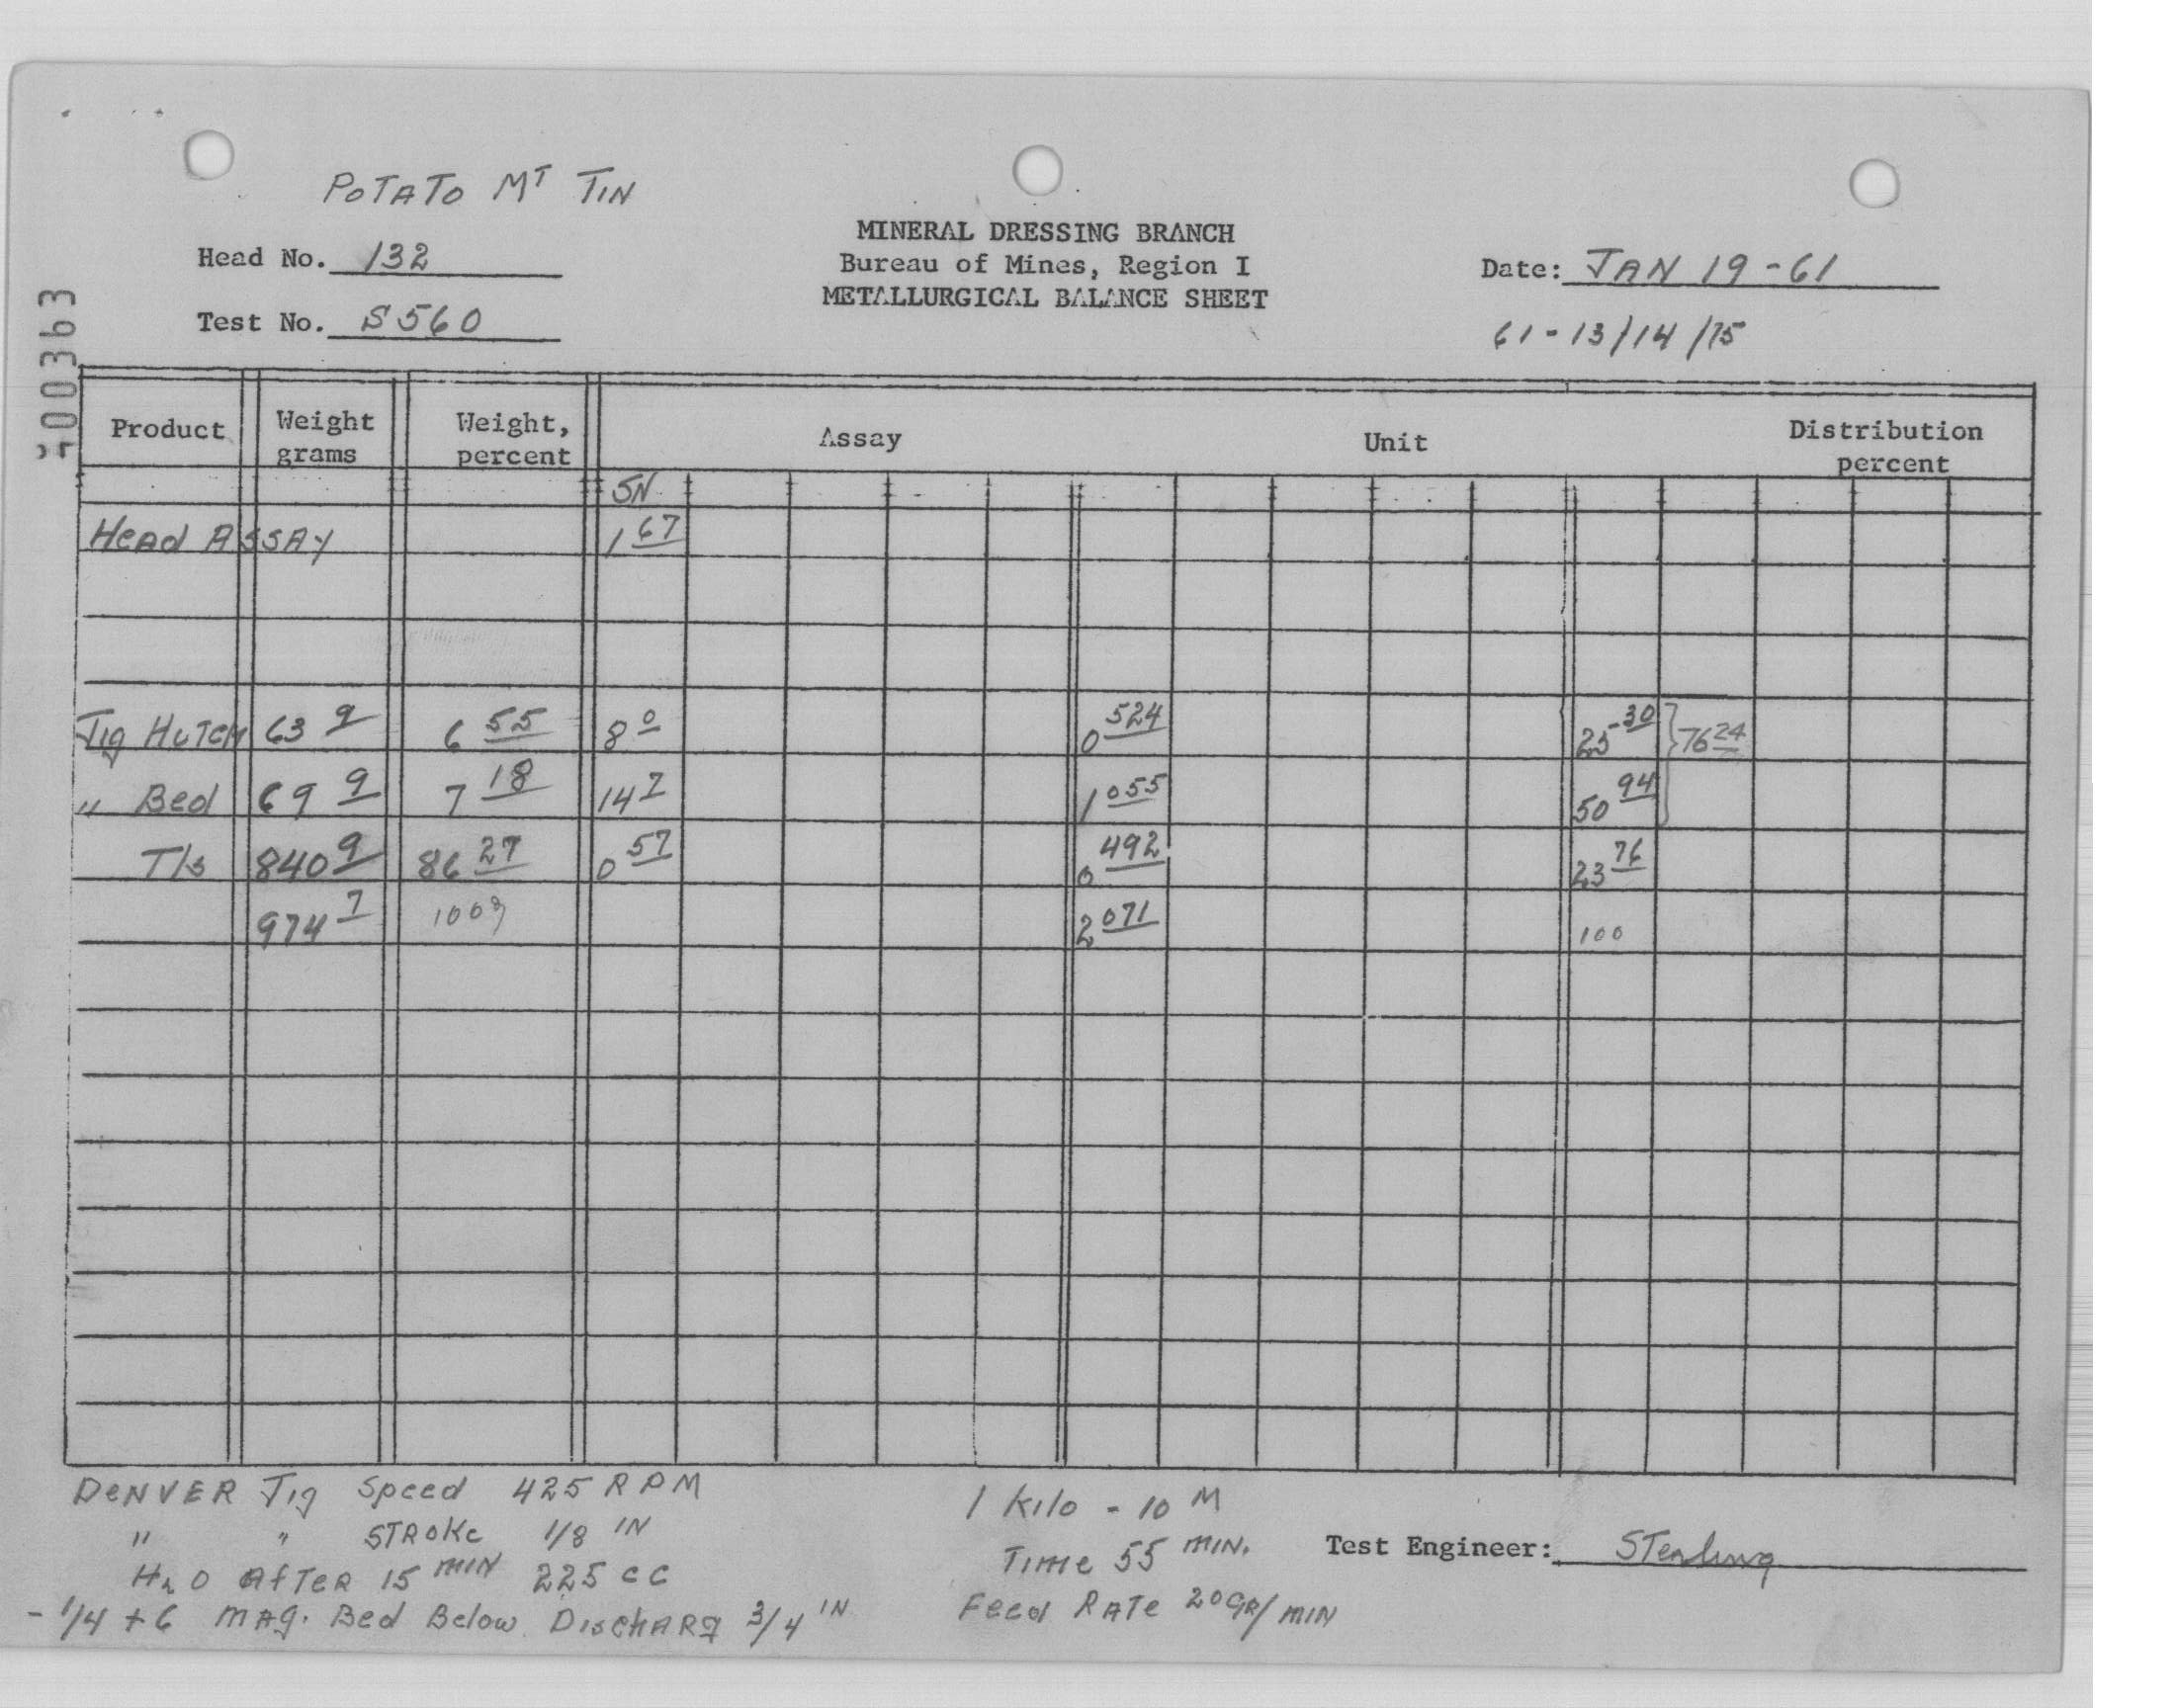 POTATO MT TIN
MINERAL DRESSING BRANCH
Head No. 132
Bureau of Mines, Region I
Date: JAN 19-61
METALLURGICAL BALANCE SHEET
Test No. S560
61-13/14/15
400363
Product Weight grams Weight, percent Assay Unit Distribution percent
SN
Head ASSAY 1 67
Jig HUTCH 63 9 6 55 8 0 0 524 25 30 76 24
" Bed 69 9 7 18 14 7 1 055 50 94
T/s 840 9 86 27 0 57 0 492 23 76
974 7 100 2 071 100
DENVER Jig Speed 425 RPM
" " STROKE 1/8 IN
H2O AFTER 15 MIN 225 CC
- 1/4 + 6 MAG. Bed Below DISCHARG 3/4 IN
1 Kilo - 10 M
Time 55 MIN.
Feed RATE 20 GR/MIN
Test Engineer: Sterling